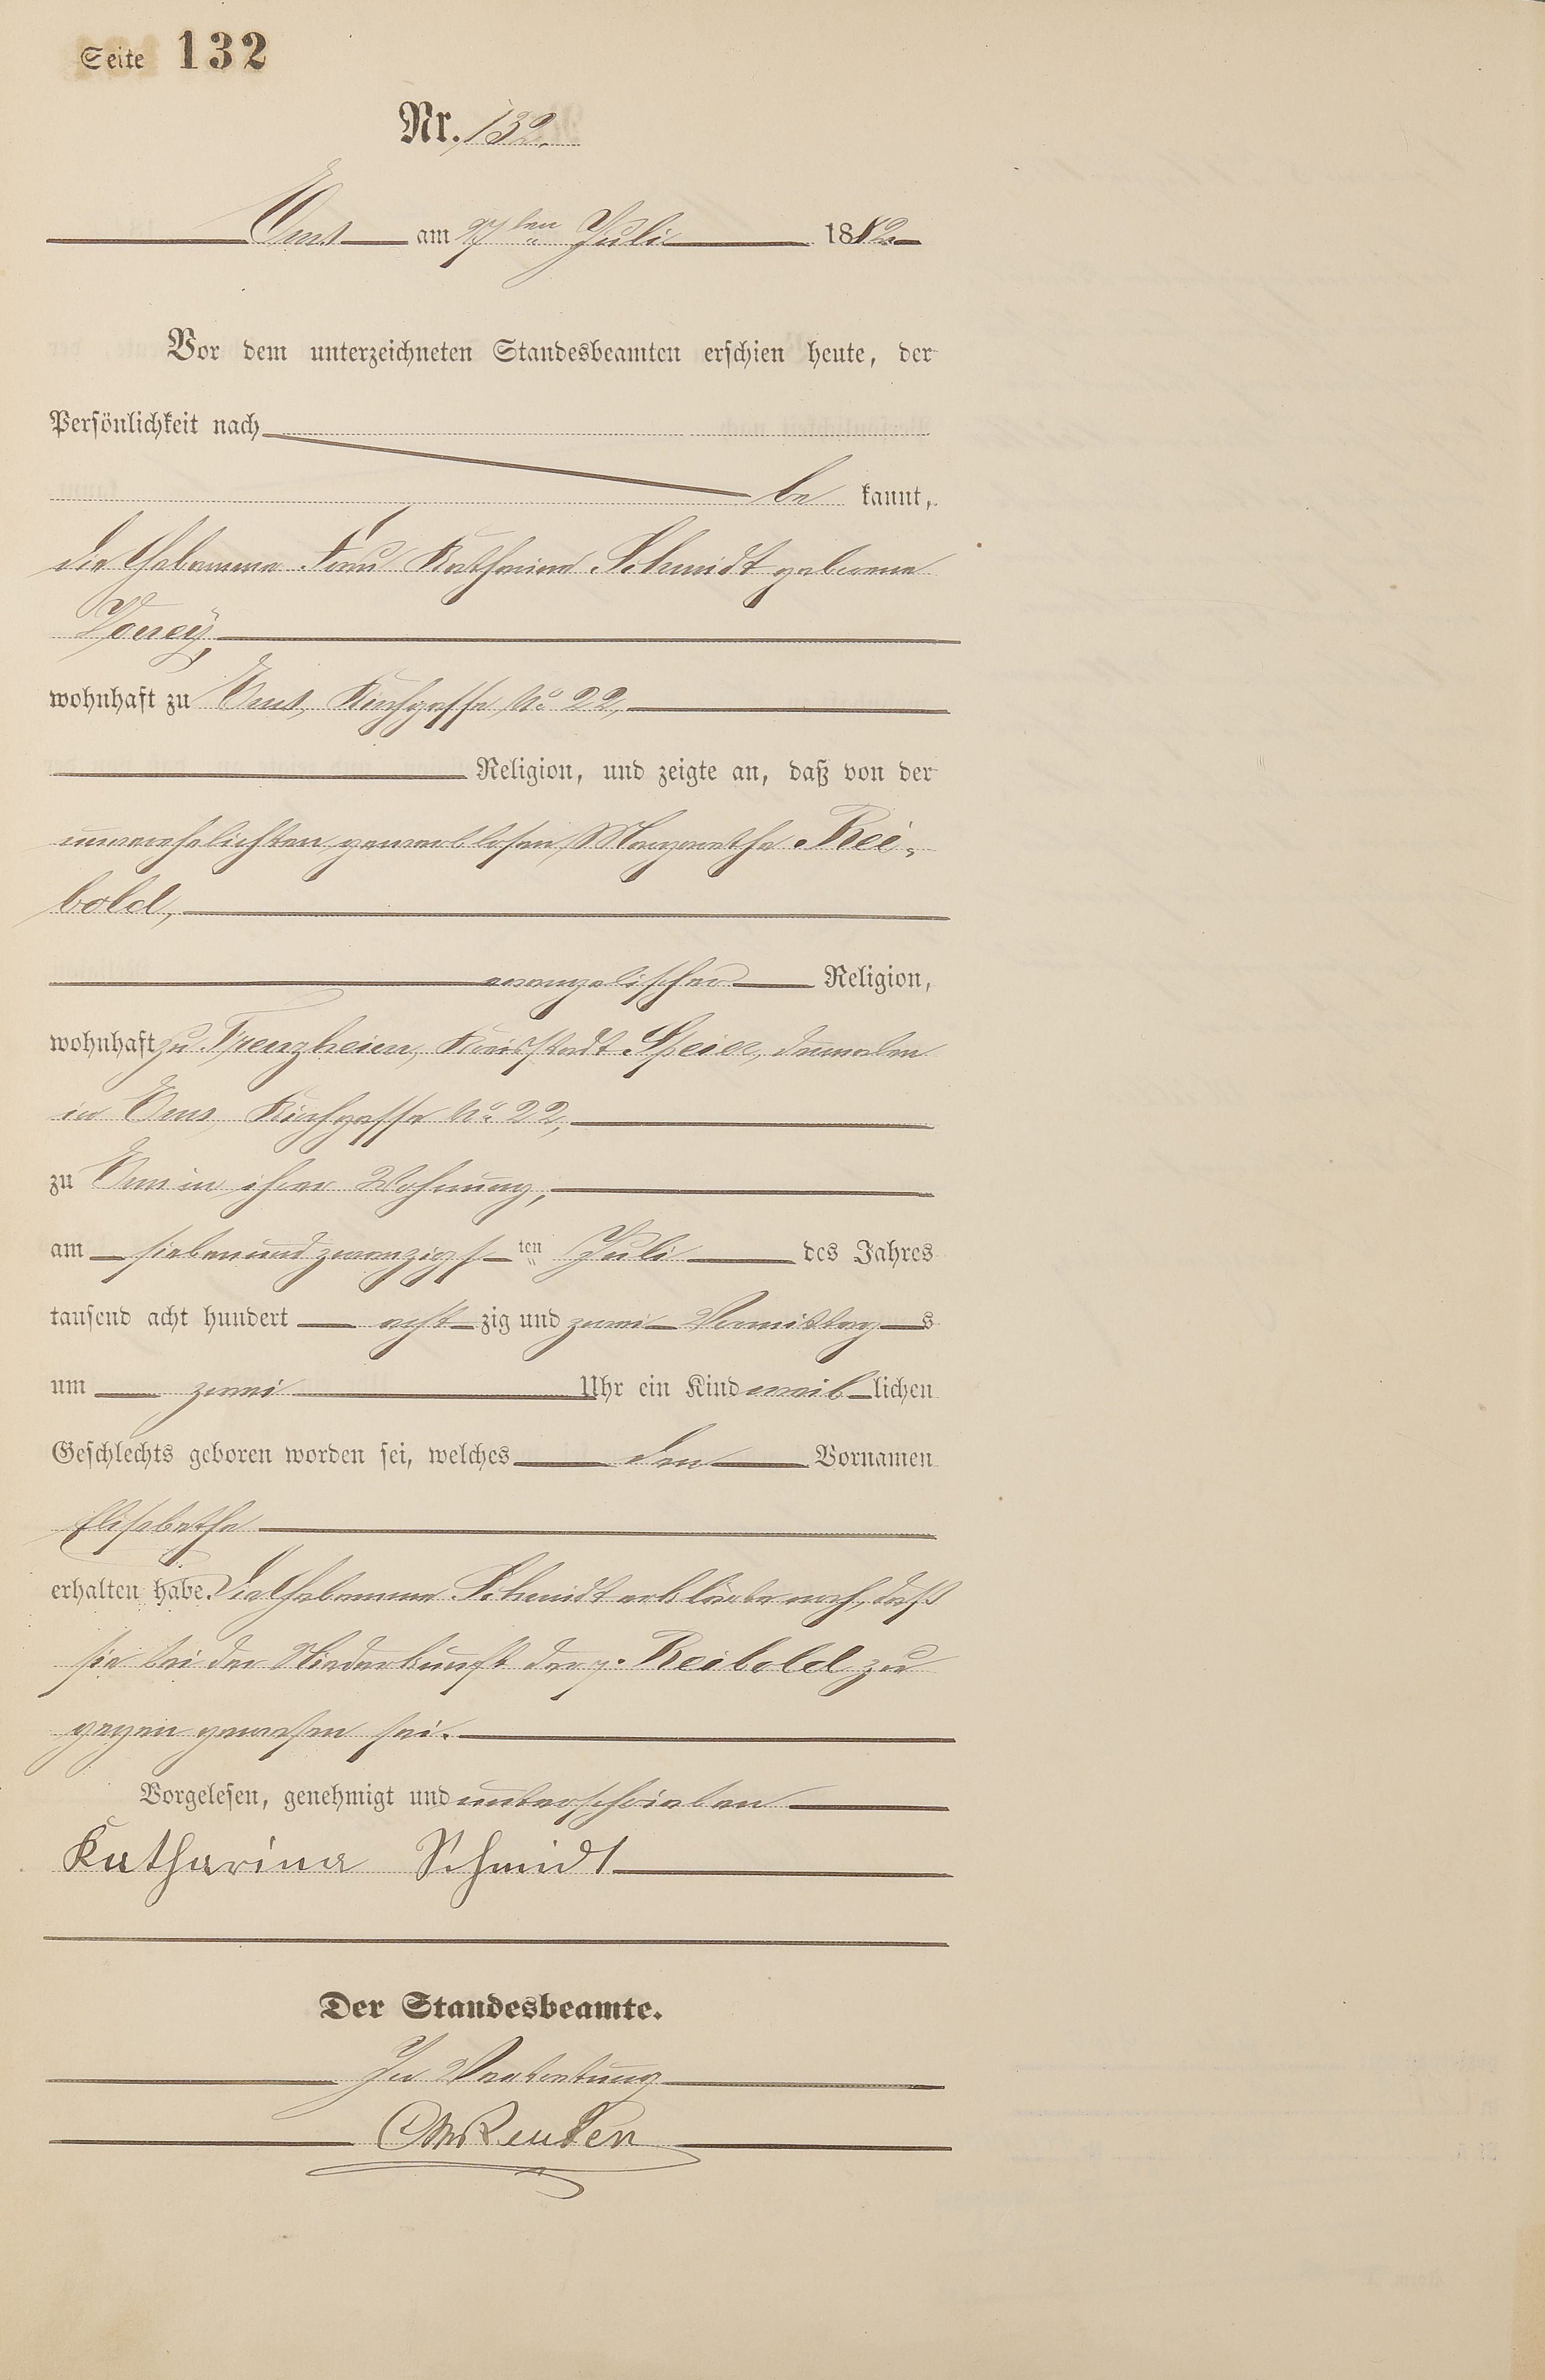 Seite 132
Nr. 132.
Ems am 27ten Juli 1882
Vor dem unterzeichneten Standesbeamten erschien heute, der
Persönlichkeit nach
be kannt,
die Hebamme Frau Katharina Schmidt geborene
wohnhaft zu Ems, Kirchgasse No. 22,
Religion, und zeigte an, daß von der
unverehelichten gewerblosen Margaretha Rei-
bold,
evangelischer Religion,
wohnhaft zu Kreisstadt Speier, dermalen
in Ems, Kirchgasse No. 22,
zu Ems in ihrer Wohnung,
am siebenundzwanzigsten Juli des Jahres
tausend acht hundert achtzig und zwei Vormittags
um zwei Uhr ein Kind weiblichen
Geschlechts geboren worden sei, welches den Vornamen
Elisabetha
erhalten habe. Die Hebamme Schmidt erklärte noch, daß
sie bei der Niederkunft der p. Reibold zu
gegen gewesen sei.
Vorgelesen, genehmigt und unterschrieben
Katharina Schmidt
Der Standesbeamte.
In Vertretung